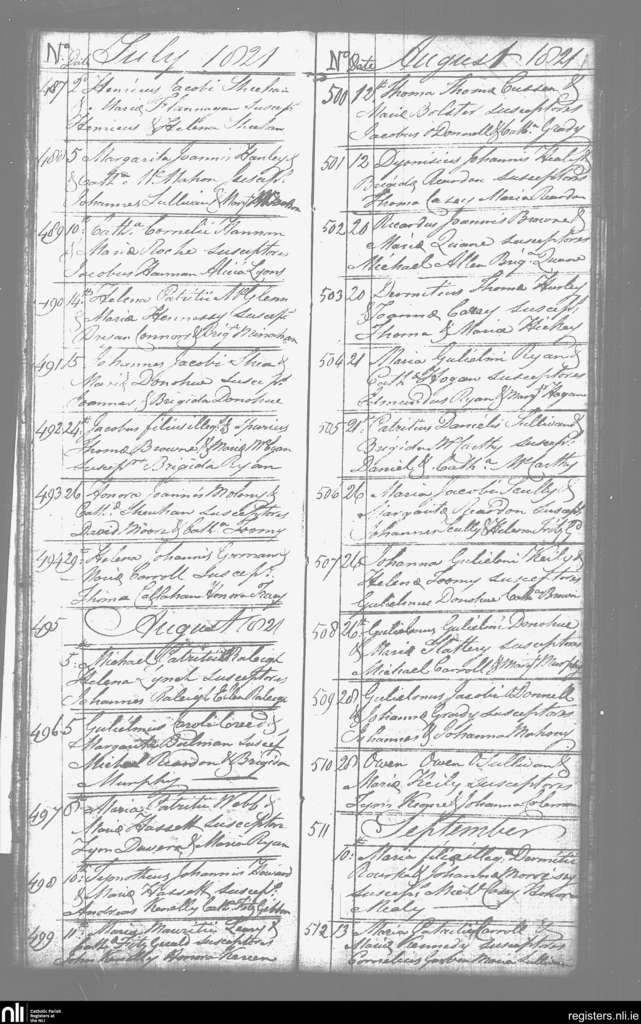 No Date July 1821
487 2d Henricus Jacobi Sheehan
& Maria Flannagan Suscep
Henricus & Helena Sheehan
488 5 Margarita Joannis Hanley &
& Cath McMahon Suscep
Johannes Sullivan & Mary McMahon
489 10 Catha Cornelii Hannan
& Maria Roche Susceptores
Jacobus Hannan Alicia Lyons
490 14 Helena Patritii McGlenn
& Maria Hennessy Suscep
Bryan Connors & Brig Minahan
491 15 Johannes Jacobi Shea &
Maria Donohue Suscep
Joannes & Brigida Donohue
492 24 Jacobus filius illeg &
Thoma Browne & Maria McEgan
Suscep Brigida Ryan
493 26 Honora Joannis Molony &
Cath Sheehan Susceptores
David Moore & Cath Toomy
494 29 Helena Johannis Gorman &
Maria Carroll Suscep
Thoma Callahan Honora Tracy
495 August 1821
5th Michael Patritii Raleigh
Helena Lynch Susceptores
Johannes Raleigh Ellen Raleigh
496 5 Gulielmus Caroli Creed &
Margarita Bulman Suscep
Michael Reardon & Brigida
Murphy
497 8 Maria Patritii Webb &
Maria Hassett Susceptores
Tym & Maria Ryan
498 10th Tymotheus Johannis
& Maria Hassett Suscep
Andreas Kenelly Cath Fitz Gibbon
499 11 Maria Mauritii Leary &
Catha Fitz Gerald Susceptores
John Kenelly Honora
No Date August 1821
500 12th Thoma Thoma Cussen &
Maria Bolster Susceptores
Jacobus O Donnell & Cath Grady
501 12 Dyonisius Johannis Healy &
Brigida Reardon Susceptores
Thoma Casey Maria Reardon
502 20 Ricardus Joannis Browne &
Maria Quane Susceptores
Michael Allen Brig Quane
503 20 Dermitius Thoma Hurley
& Joanna Casey Suscep
Thoma & Maria Hickey
504 21 Maria Gulielmi Ryan &
Cath Hogan Susceptores
Edmundus Ryan & Mary Hogan
505 21 Patritius Danielis Sullivan &
Brigida McCarthy Suscep
Daniel & Cath McCarthy
506 26 Maria Jacobi Scully &
Margarita Reardon Suscep
Johannes Scully & Helena Fitz Gd
507 26 Johanna Gulielmi Keily &
Helena Toomy Susceptores
Gulielmus Donohue Cath Brown
508 26th Gulielmus Gulielmi Donohue
& Maria Slattery Susceptores
Michael Carroll & Mary Murphy
509 28 Gulielmus Jacobi O Donnell
& Johanna Grady Susceptores
Johannes & Johanna Mahony
510 28 Owen Owen O Sullivan &
Maria Keily Susceptores
Tym Keogh & Johanna
511 September
10th Maria filia illeg Dermitii
Rourke & Johanna Morrissy
Suscep Mich Cay Honor
Nealy
512 13 Maria Patritii Carroll &
Maria Kennedy Susceptores
Cornelius Maria Sullivan
nli Catholic Parish Registers at the NLI
registers.nli.ie